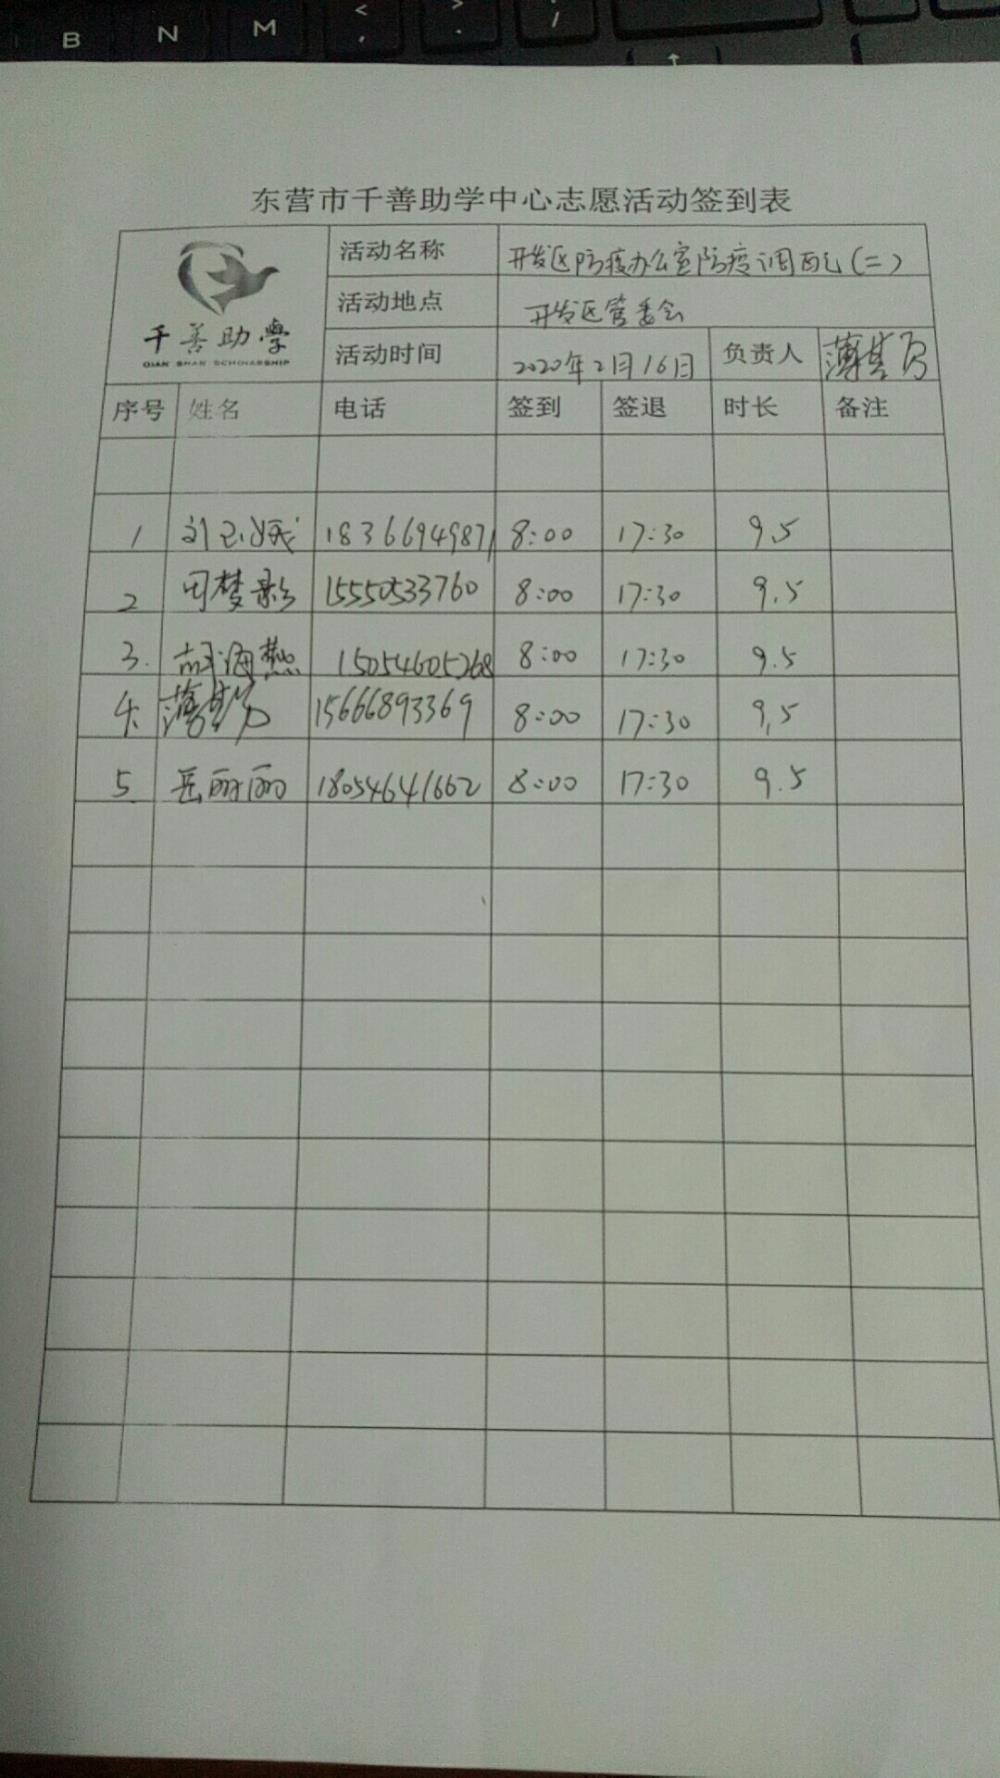 B N M < , > . ? /
东营市千善助学中心志愿活动签到表
千善助學
QIAN SHAN SCHOLARSHIP
活动名称 开发区防疫办公室防疫调配(二)
活动地点 开发区管委会
活动时间 2020年2月16日 负责人
序号 姓名 电话 签到 签退 时长 备注
1 18366949871 8:00 17:30 9.5
2 周梦影 15550533760 8:00 17:30 9.5
3. 胡海燕 15054605268 8:00 17:30 9.5
4. 15666893369 8:00 17:30 9.5
5 岳丽丽 18054641662 8:00 17:30 9.5